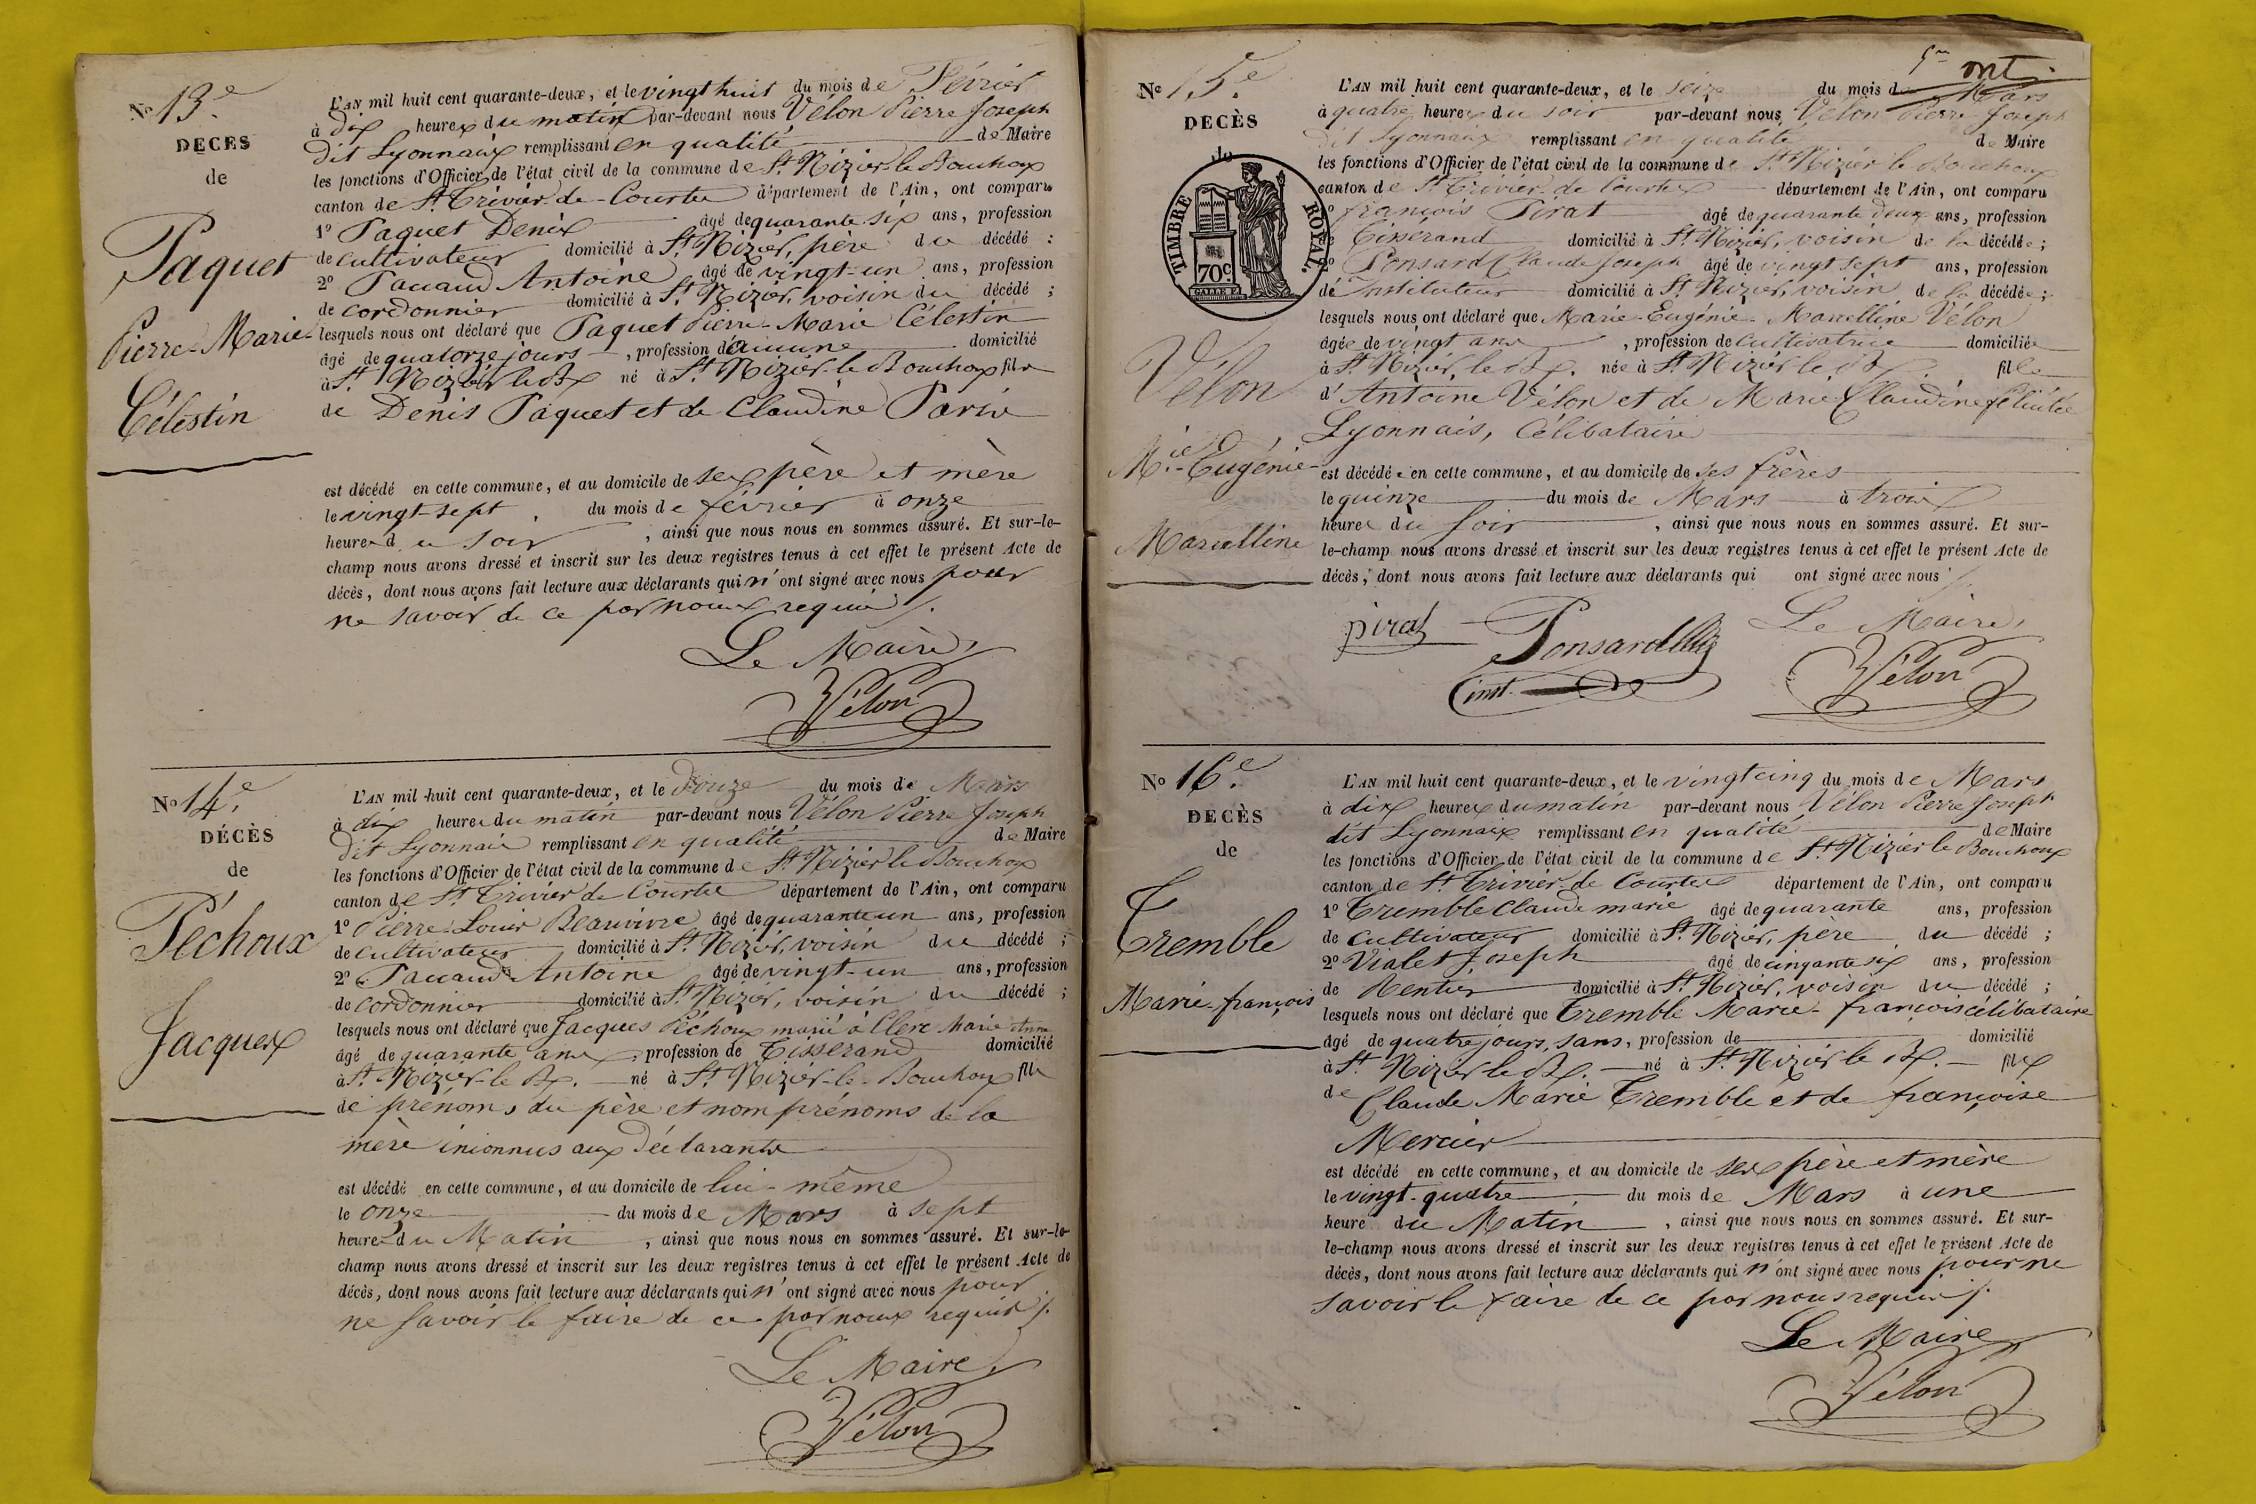 No 13.e
DECES
de
Paquet
Pierre-Marie-
Célestin
L'AN mil huit cent quarante-deux, et le vingt huit du mois de Février
à dix heures du matin par-devant nous Vélon Pierre Joseph
dit Lyonnaix remplissant en qualité de Maire
les fonctions d'Officier de l'état civil de la commune de St. Nizier-le Bouchoux
canton de St. Trivier-de-Courtes département de l'Ain, ont comparu
1o Paquet Denis âgé de quarante six ans, profession
de cultivateur domicilié à St. Nizier, père du décédé ;
2o Pauaud Antoine âgé de vingt-un ans, profession
de cordonnier domicilié à St. Nizier, voisin du décédé ;
lesquels nous ont déclaré que Paquet Pierre-Marie Célestin
âgé de quatorze jours , profession d'aucune domicilié
à St. Nizier le Bx né à St. Nizier-le Bouchoux fils
de Denis Paquet et de Claudine Parix
est décédé en cette commune, et au domicile de ses père et mère
le vingt-sept du mois de février à onze
heures du soir , ainsi que nous nous en sommes assuré. Et sur-le-
champ nous avons dressé et inscrit sur les deux registres tenus à cet effet le présent Acte de
décès, dont nous avons fait lecture aux déclarants qui n'ont signé avec nous pour
ne savoir de ce par nous requis ./.
Le Maire,
Vélon
No 14.e
DÉCÈS
de
Péchoux
Jacques
L'AN mil huit cent quarante-deux, et le Douze du mois de Mars
à dix heures du matin par-devant nous Vélon Pierre Joseph
Dit Lyonnais remplissant en qualité de Maire
les fonctions d'Officier de l'état civil de la commune de St. Nizier le Bouchoux
canton de St. Trivier de Courtes département de l'Ain, ont comparu
1o Pierre-Louis Beauvivre âgé de quarante un ans, profession
de cultivateur domicilié à St. Nizier, voisin du décédé ;
2o Pauaud Antoine âgé de vingt-un ans, profession
de cordonnier domicilié à St. Nizier, voisin du décédé ;
lesquels nous ont déclaré que Jacques Péchoux marié à Clerc Marie Anne
âgé de quarante ans , profession de Tisserand domicilié
à St. Nizier-le Bx. né à St. Nizier-le-Bouchoux fils
de prénoms du père et nom prénoms de la
mère inconnus aux Déclarants
est décédé en cette commune, et au domicile de lui-même
le onze du mois de Mars à sept
heures du Matin , ainsi que nous nous en sommes assuré. Et sur-le-
champ nous avons dressé et inscrit sur les deux registres tenus à cet effet le présent Acte de
décès, dont nous avons fait lecture aux déclarants qui n'ont signé avec nous pour
ne savoir le faire de ce par nous requis ./.
Le Maire,
Vélon
ont.
No 15.e
DECÈS
de
TIMBRE ROYAL.
70c
Vélon
Mie-Eugénie-
Marcelline
L'AN mil huit cent quarante-deux, et le seize du mois de Mars
à quatre heures du soir par-devant nous Vélon Pierre Joseph
dit Lyonnaix remplissant en qualité de Maire
les fonctions d'Officier de l'état civil de la commune de St. Nizier le Bouchoux
canton de St. Trivier de Courtes département de l'Ain, ont comparu
1o françois Pirat âgé de quarante deux ans, profession
de Tisserand domicilié à St. Nizier, voisin de la décédée ;
2o Ponsard Claude Joseph âgé de vingt sept ans, profession
de Instituteur domicilié à St. Nizier, voisin de la décédée ;
lesquels nous ont déclaré que Marie-Eugénie-Marcelline Vélon
âgée de vingt ans , profession de cultivatrice domiciliée
à St. Nizier, le Bx. née à St. Nizier le Bx. fille
d'Antoine Vélon et de Marie Claudine félicitée
Lyonnais, célibataire
est décédée en cette commune, et au domicile de ses frères
le quinze du mois de Mars à trois
heures du soir , ainsi que nous nous en sommes assuré. Et sur-
le-champ nous avons dressé et inscrit sur les deux registres tenus à cet effet le présent Acte de
décès, dont nous avons fait lecture aux déclarants qui ont signé avec nous ./.
pirat Ponsard
inst. Le Maire,
Vélon
No 16.e
DECÈS
de
Tremble
Marie-françois
L'AN mil huit cent quarante-deux, et le vingt cinq du mois de Mars
à dix heures du matin par-devant nous Vélon Pierre Joseph
dit Lyonnaix remplissant en qualité de Maire
les fonctions d'Officier de l'état civil de la commune de St. Nizier le Bouchoux
canton de St. Trivier de Courtes département de l'Ain, ont comparu
1o Tremble Claude marie âgé de quarante ans, profession
de cultivateur domicilié à St. Nizier, père du décédé ;
2o Vialet Joseph âgé de cinquante six ans, profession
de Rentier domicilié à St. Nizier, voisin du décédé ;
lesquels nous ont déclaré que Tremble Marie-françois célibataire
âgé de quatre jours, sans , profession de domicilié
à St. Nizier le Bx. né à St. Nizier le Bx. fils
de Claude Marie Tremble et de françoise
Mercier
est décédé en cette commune, et au domicile de ses père et mère
le vingt-quatre du mois de Mars à une
heure du Matin , ainsi que nous nous en sommes assuré. Et sur-
le-champ nous avons dressé et inscrit sur les deux registres tenus à cet effet le présent Acte de
décès, dont nous avons fait lecture aux déclarants qui n'ont signé avec nous pour ne
savoir le faire de ce par nous requis ./.
Le Maire,
Vélon